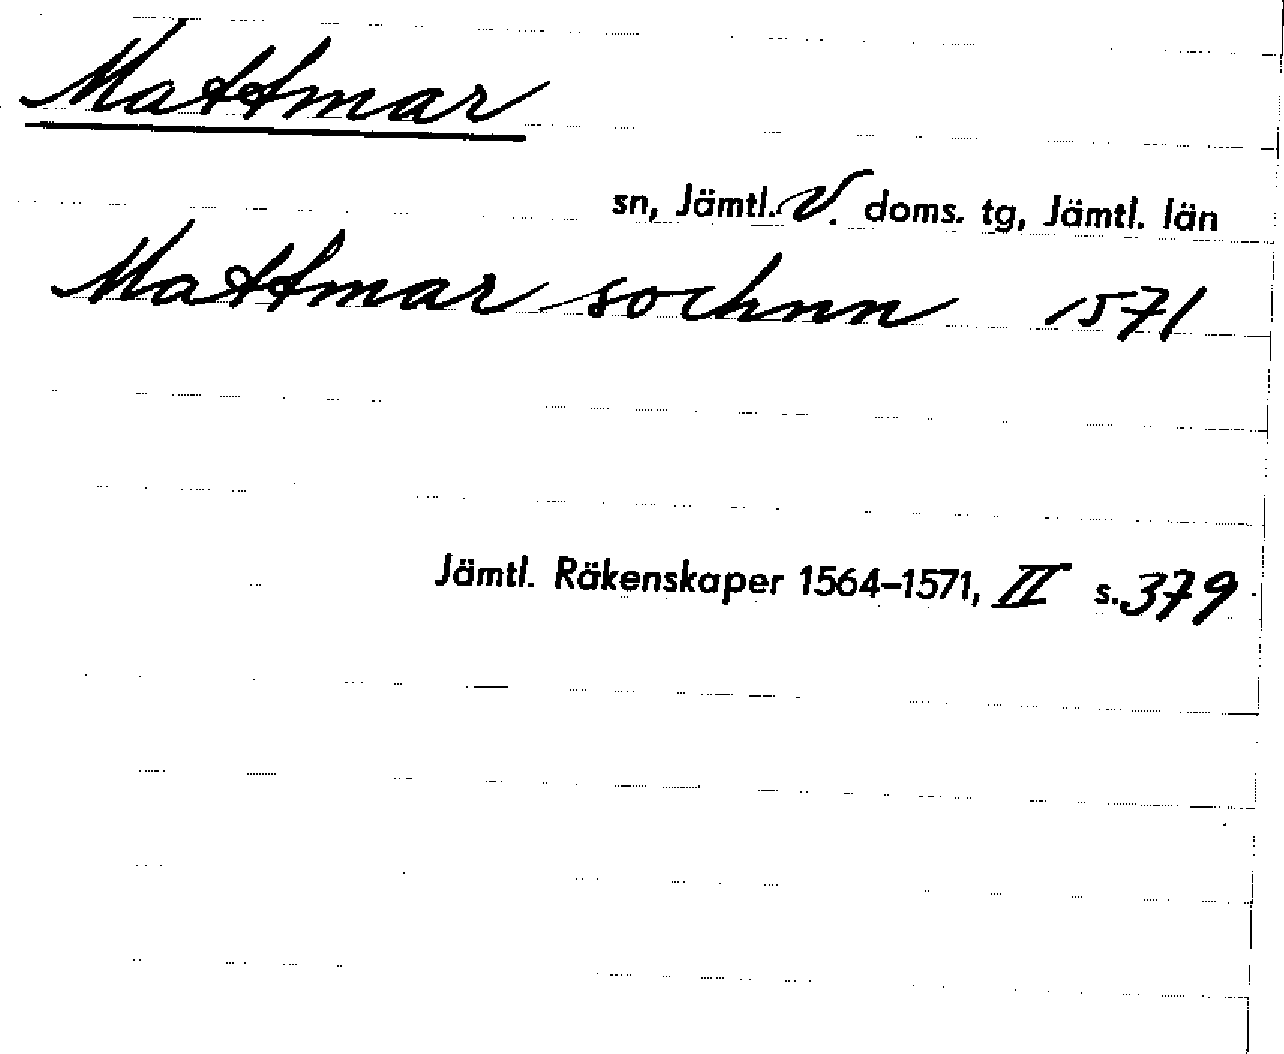 Mattmar
sn, Jämtl. V. doms. tg, Jämtl. län
Mattmar sochnn 1571
Jämtl. Räkenskaper 1564–1571, II s. 379